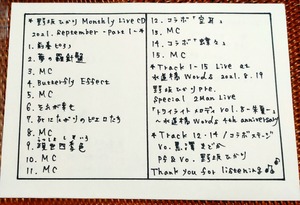 * 野坂ひかり Monthly Live CD
2021. September - Part 1 - *
1. 青春ピリオド
2. 夢の羅針盤
3. MC
4. Butterfly Effect
5. MC
6. それが幸せ
7. 町にばかりのピエロたち
8. MC
9. 現世四景色
10. MC
11. MC
12. コラボ『空耳』
13. MC
14. コラボ『蝶々』
15. MC
* Track 1-15 Live at
水道橋 Words 2021. 8. 19
野坂ひかり Pre.
Special 2Man Live
『トワイライトメロディ vol. 8 -朱夏-』
～水道橋 Words 4th anniversary～
* Track 12・14 / コラボステージ
Vo.
Pf & Vo. 野坂ひかり
Thank you for listening